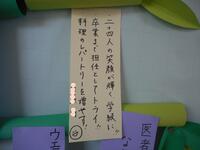 二十四人の笑顔が輝く学級に！
卒業まで担任としてトライ！
料理のレパートリーを増やす！
医者
ウェ